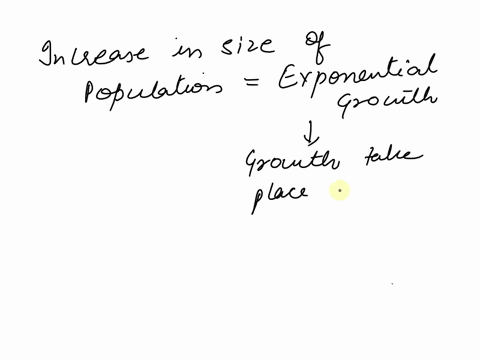 Increase in size of
Population = Exponential
Growth
Growth take
place